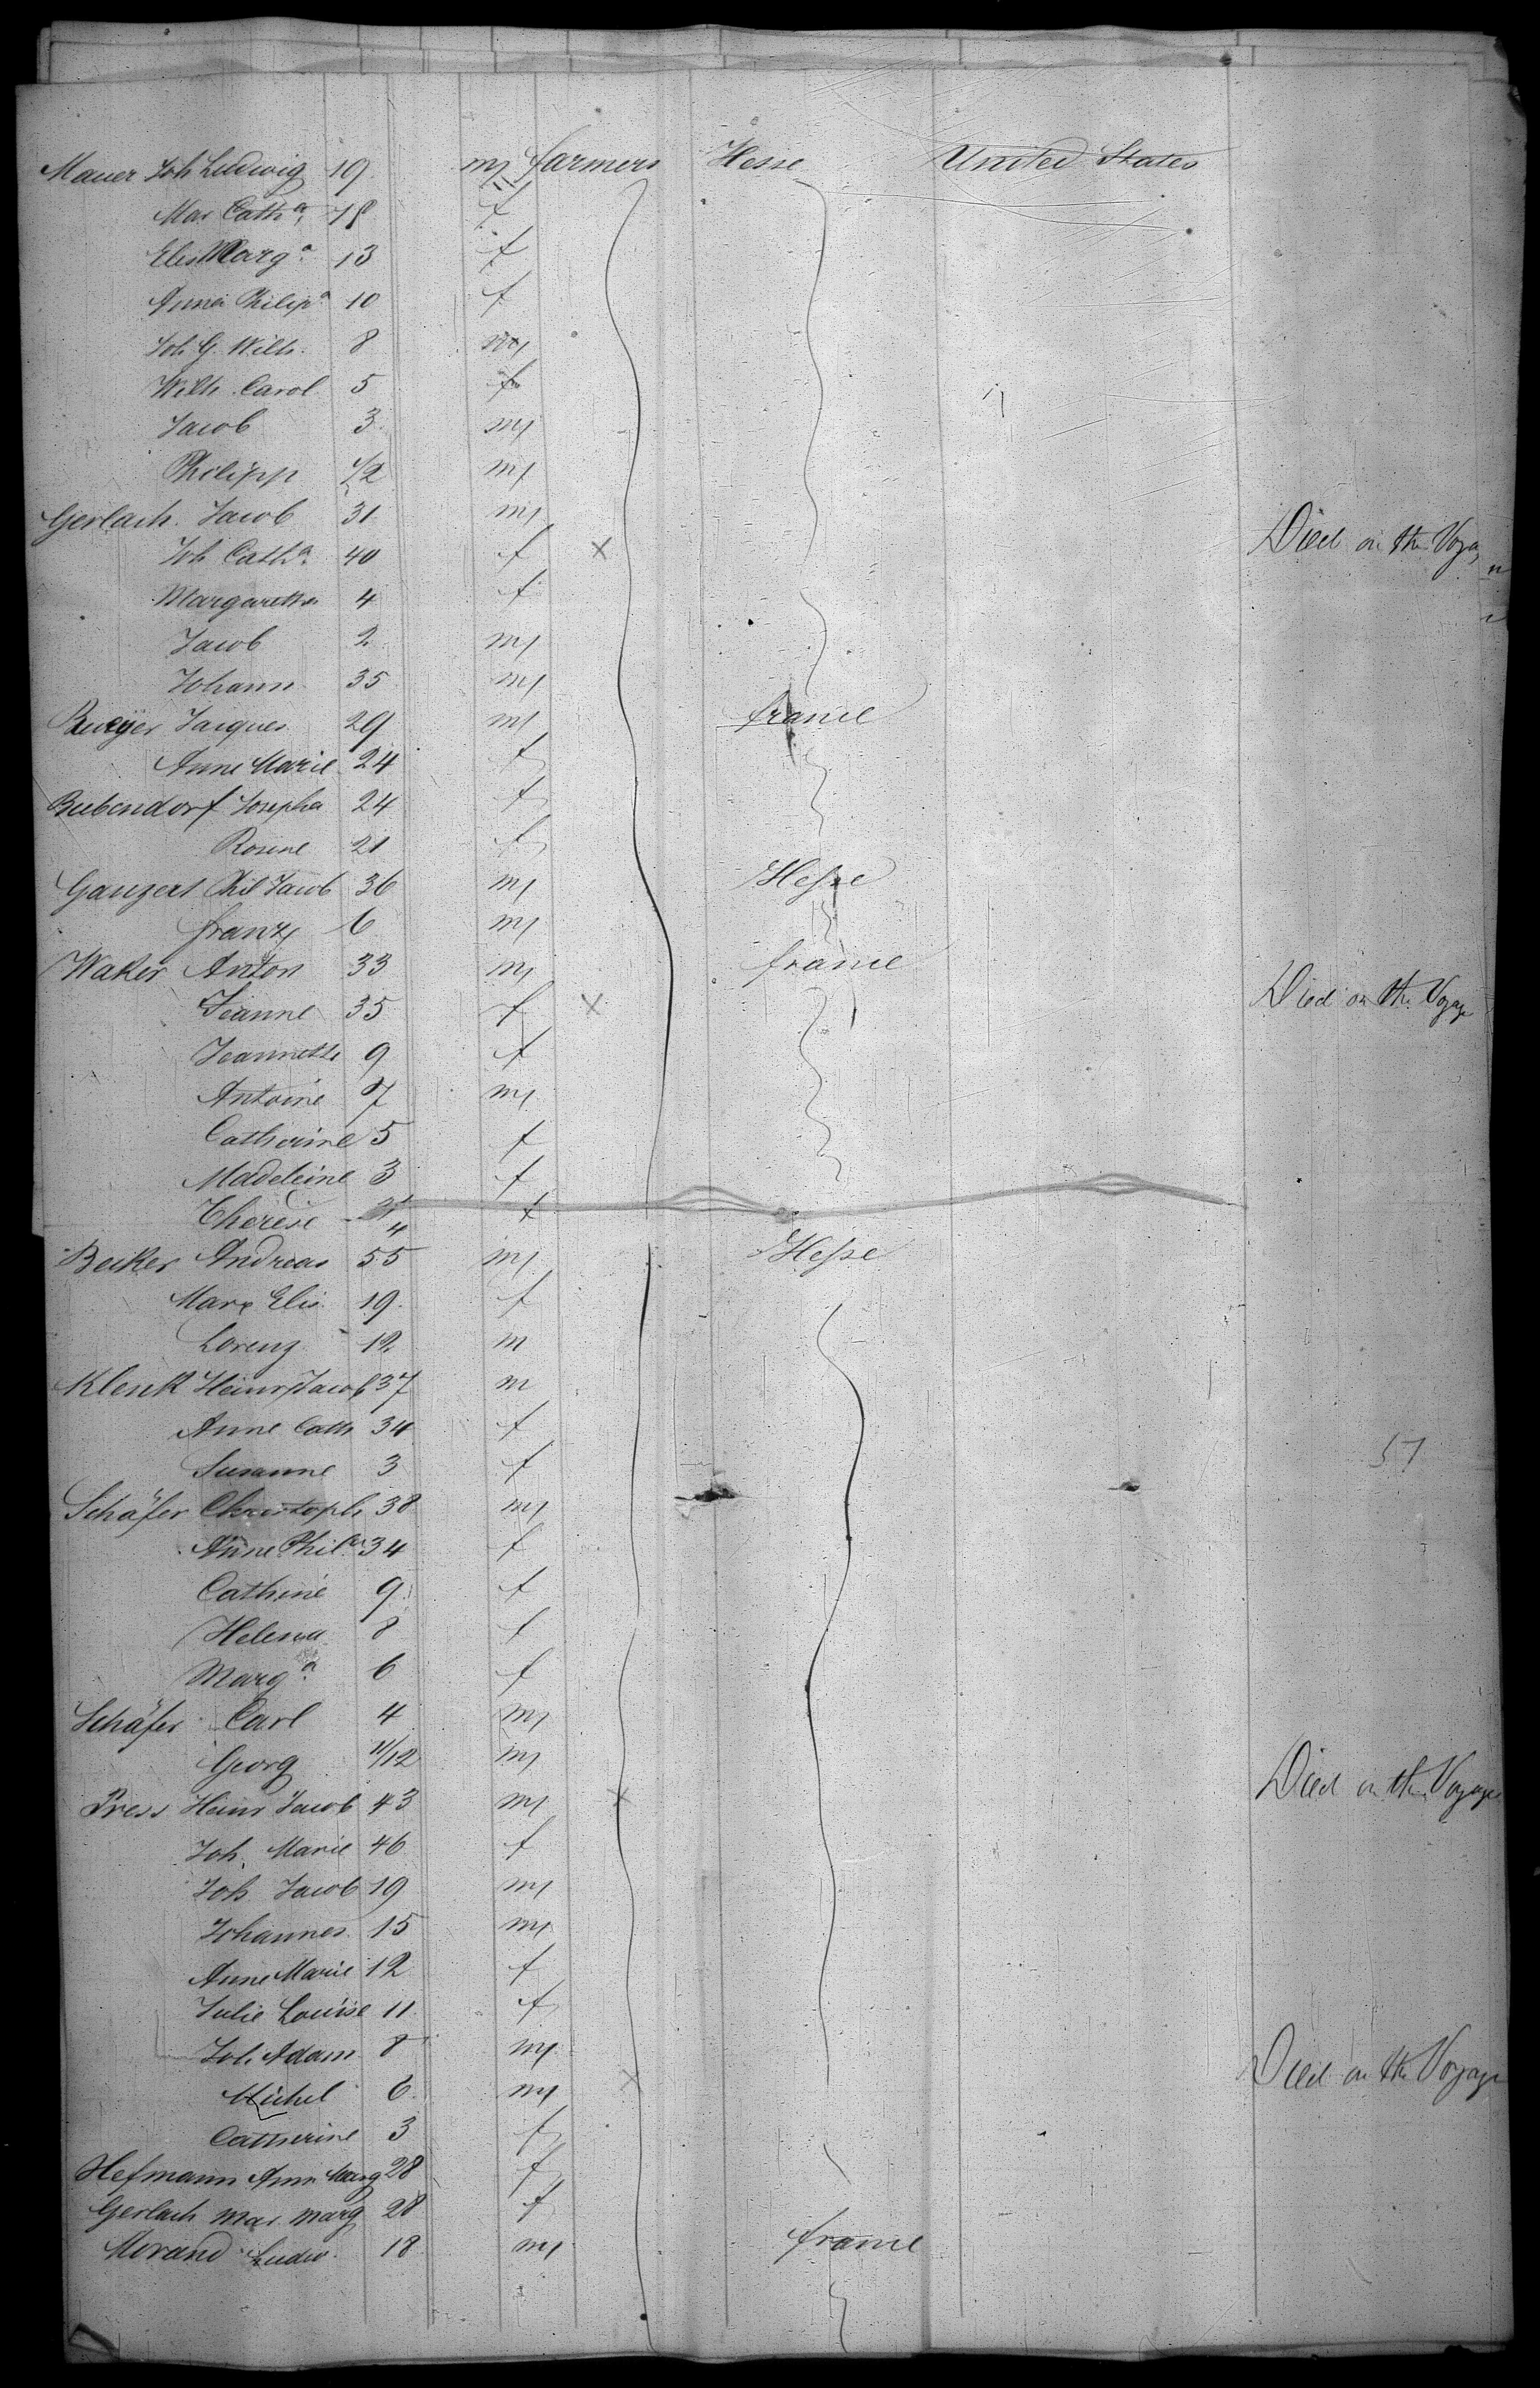 Mauer Joh Ludwig 19 m farmers Hesse United States
Mar. Cath.a 18 f
Elis Marg.a 13 f
Anna Philip.a 10 f
Joh G. Wilh. 8 m
Wilh. Carol. 5 f
Jacob 3 m
Philipp 1/2 m
Gerlach. Jacob 31 m
Joh Cath.a 40 f X Died on the Voya
Margaretha 4 f
Jacob 2 m
Johann 35 m
Jacques 29 m france
Anne Marie 24 f
Bubendorf Josepha 24 f
Rosine 21 f
Ganzert Phil Jacob 36 m Hesse
franz 6 m
Waker Anton 33 m france
Jeanne 35 f X Died on the Voyage
Jeannette 9 f
Antoine 7 m
Catherine 5 f
Madeleine 3 f
Therese 3/4 f
Becker Andreas 55 m Hesse
Marg Elis. 19 f
Lorenz 12 m
Klenk Heinr Jacob 37 m
Anne Cath 34 f
Susanne 3 f
57
Schäfer Christoph 38 m
Anne Phil.a 34 f
Cathine 9 f
Helena 8 f
Marg.a 6 f
Schäfer Carl 4 m
Georg 11/12 m
Press Heinr Jacob 43 m X Died on the Voyage
Joh. Marie 46 f
Joh Jacob 19 m
Johannes 15 m
Anne Marie 12 f
Julie Louise 11 f
Joh. Adam 8 m
Michel 6 m X Died on the Voyage
Catherine 3 f
Hefmann Ann Marg 28 f
Gerlach Mar. Marg 28 f
Morand Ludw. 18 m france